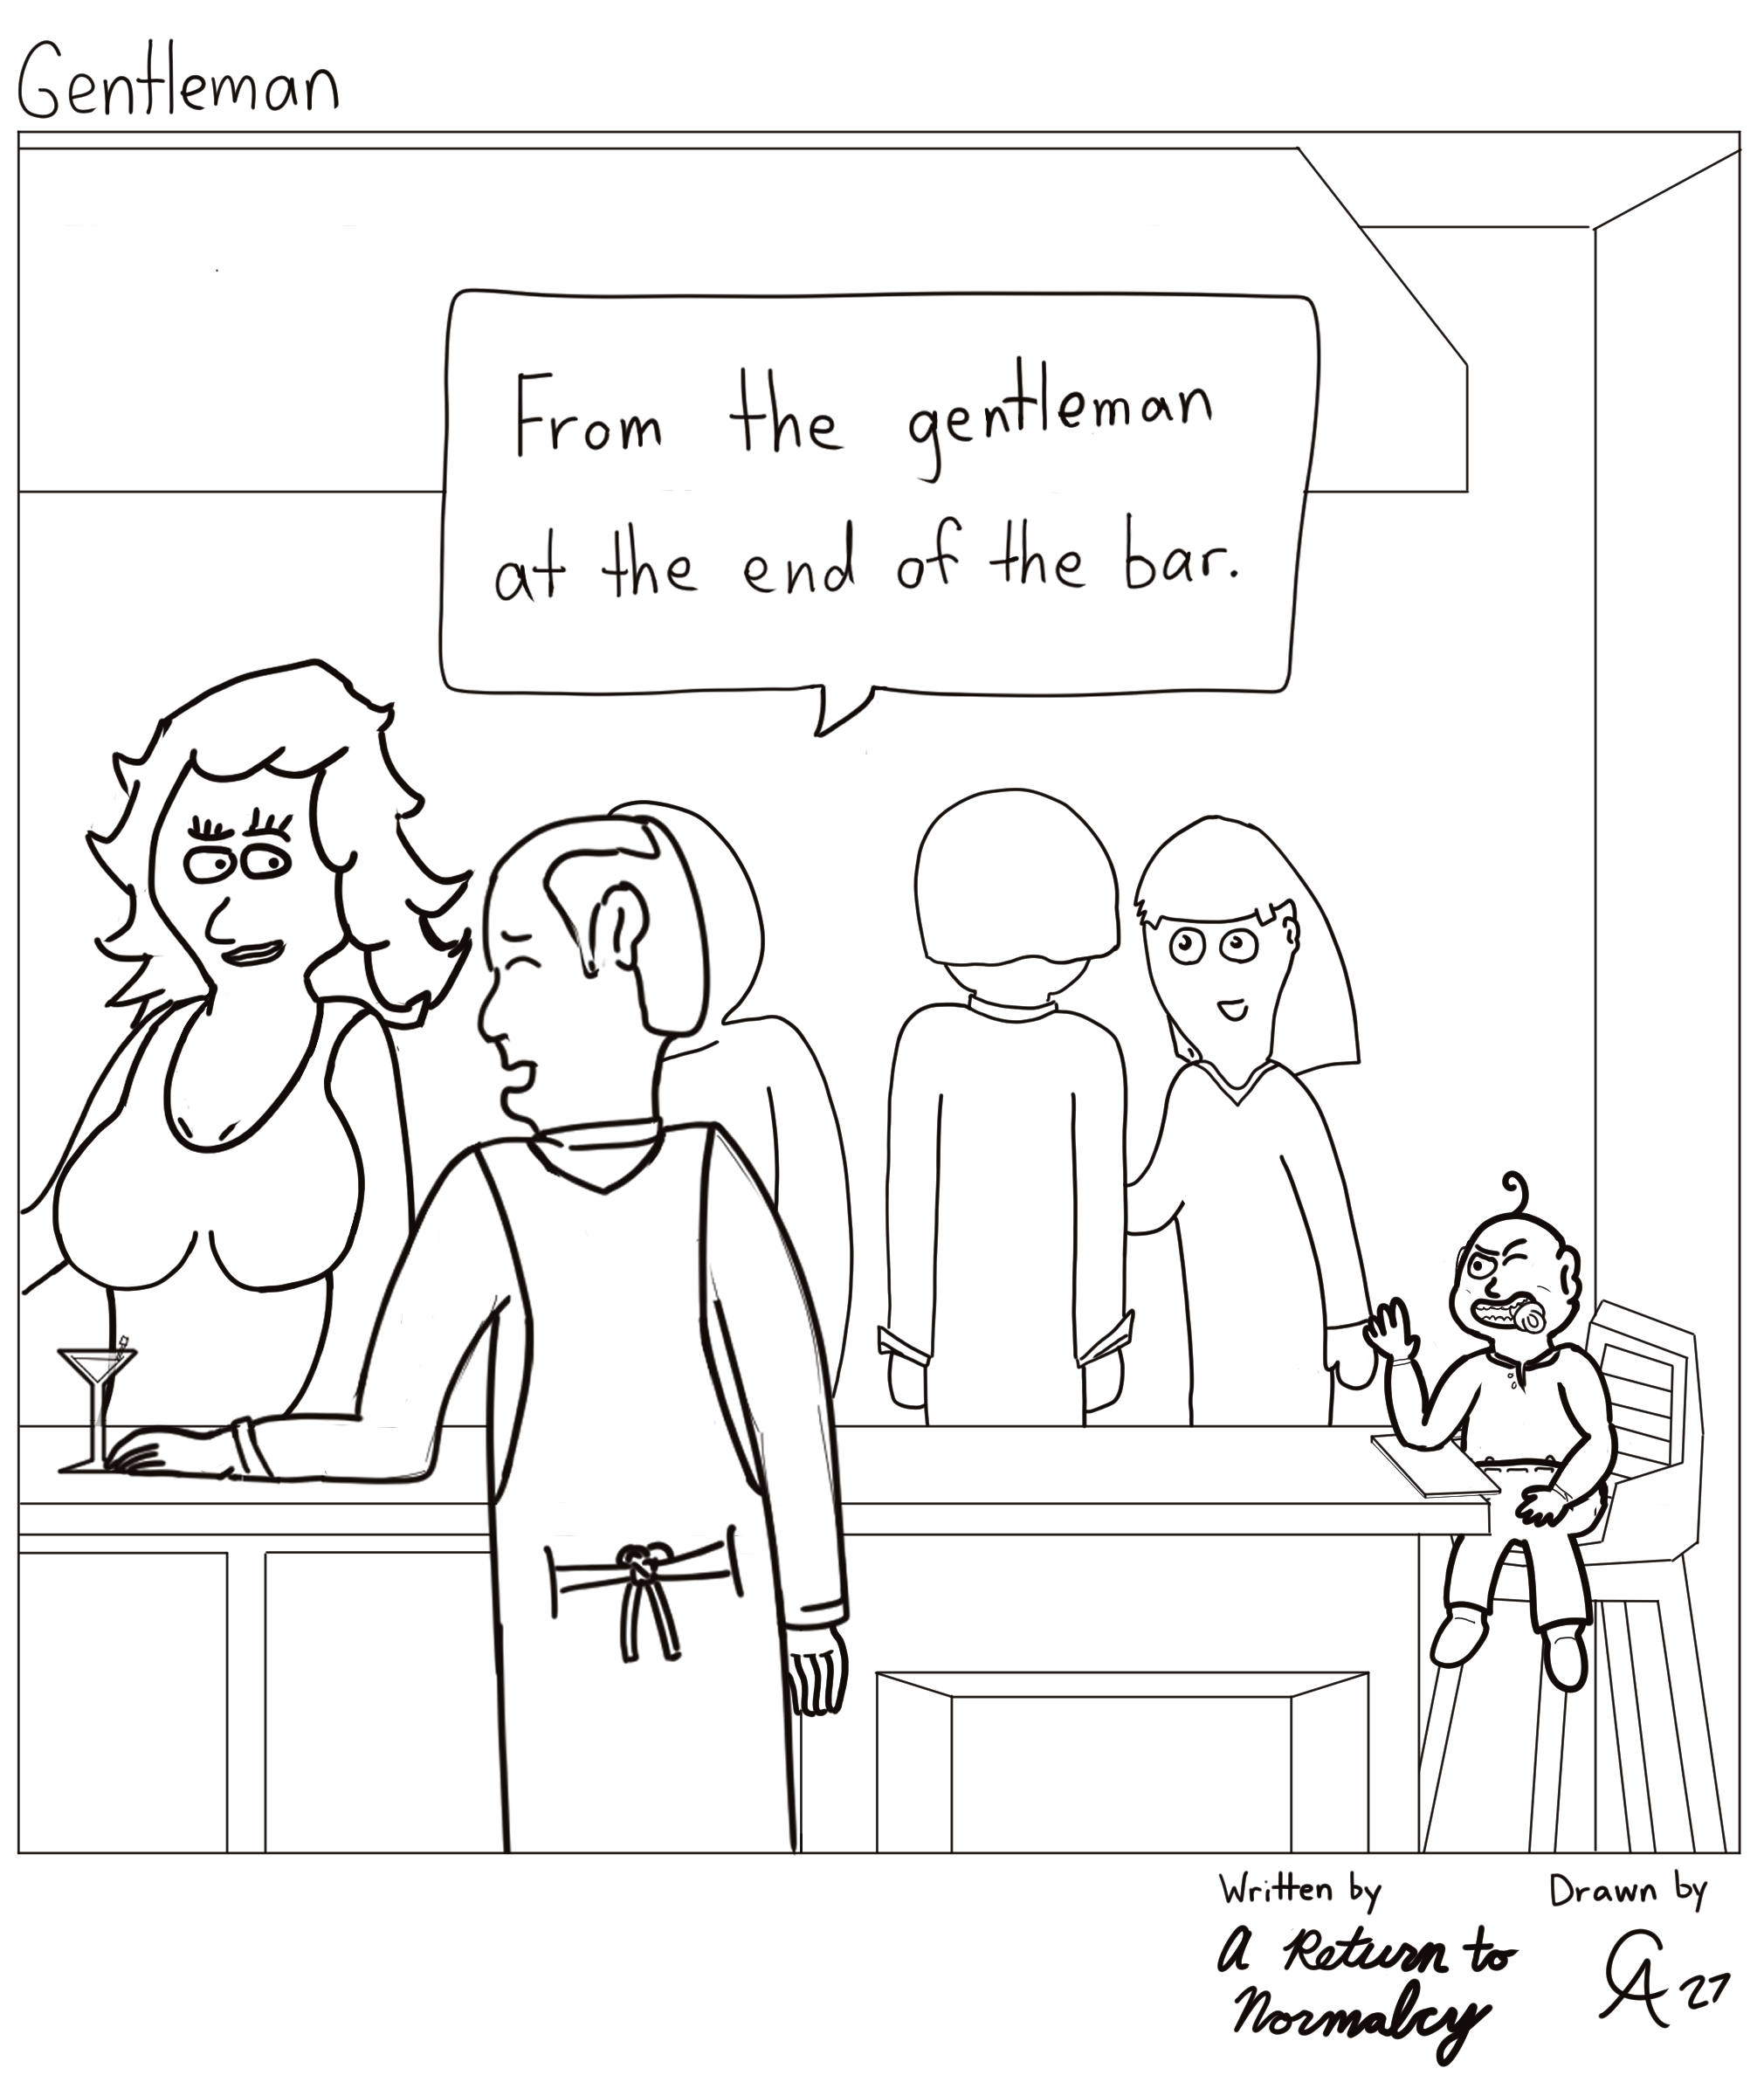 Gentleman
From the gentleman
at the end of the bar.
Written by
A Return to
Normalcy
Drawn by
CA 27